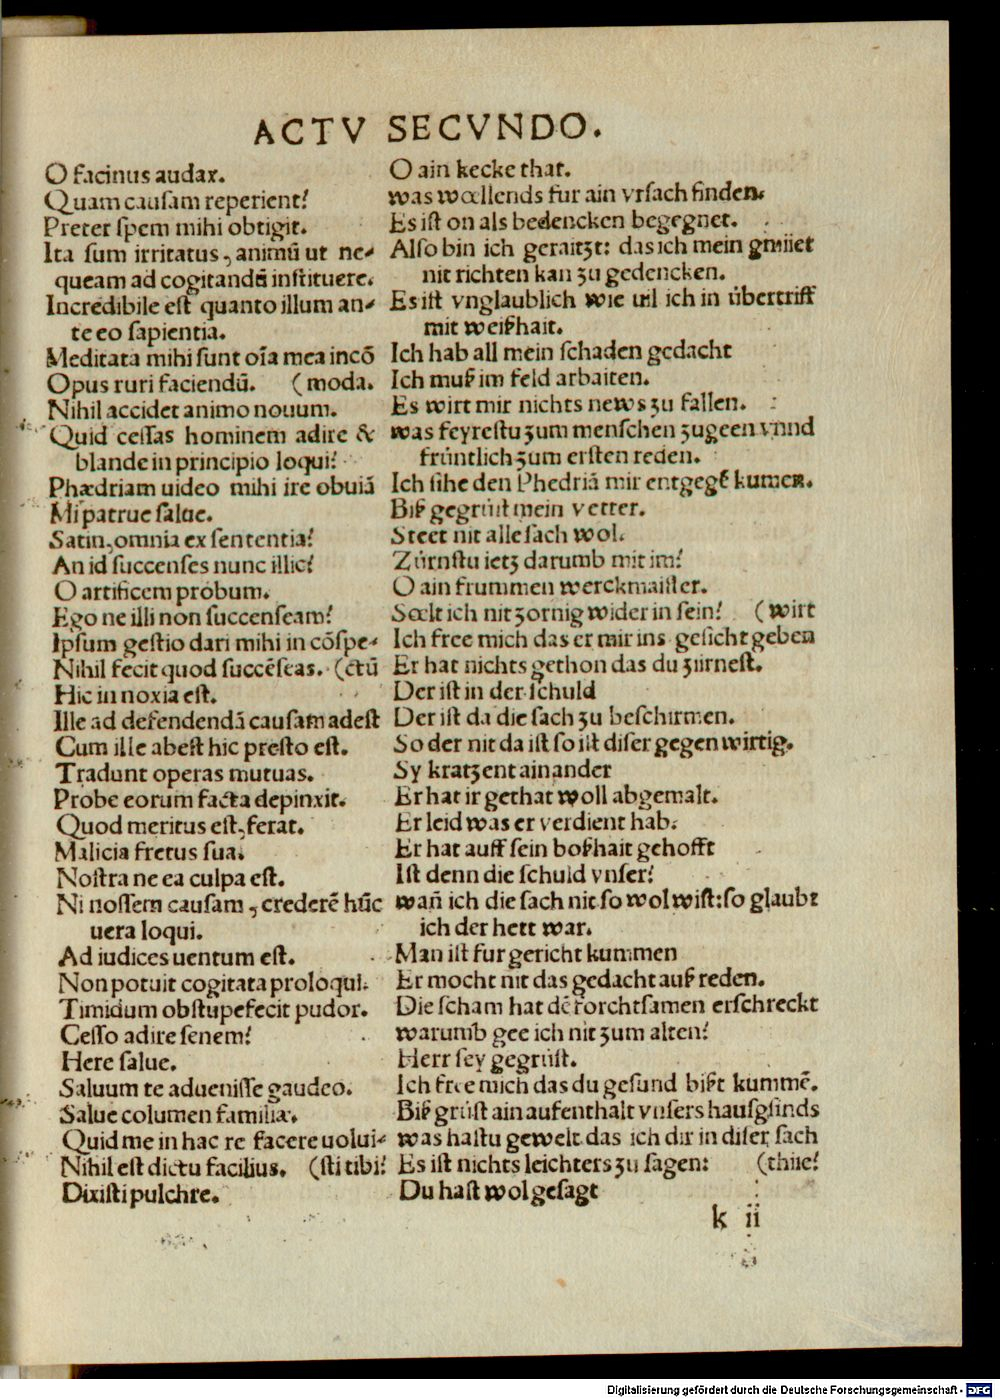 ACTV SECVNDO.
O facinus audax.
Quam causam reperient?
Preter spem mihi obtigit.
Ita sum irritatus, animũ ut ne-
queam ad cogitandũ instituere.
Incredibile est quanto illum an-
te eo sapientia.
Meditata mihi sunt oĩa mea incõ
Opus ruri faciendũ. (moda.
Nihil accidet animo nouum.
Quid cessas hominem adire &
blande in principio loqui?
Phædriam uideo mihi ire obuiã
Mi patrue salue.
Satin, omnia ex sententia?
An id succenses nunc illic?
O artificem probum.
Ego ne illi non succenseam?
Ipsum gestio dari mihi in cõspe-
Nihil fecit quod succẽseas. (ctũ
Hic in noxia est.
Ille ad defendendã causam adest
Cum ille abest hic presto est.
Tradunt operas mutuas.
Probe eorum facta depinxit.
Quod meritus est, ferat.
Malicia fretus sua.
Nostra ne ea culpa est.
Ni nossem causam, crederẽ hũc
uera loqui.
Ad iudices uentum est.
Non potuit cogitata proloqui.
Timidum obstupefecit pudor.
Cesso adire senem?
Here salue.
Saluum te aduenisse gaudeo.
Salue columen familiæ.
Quid me in hac re facere uolui-
Nihil est dictu facilius. (sti tibi?
Dixisti pulchre.
O ain kecke that.
was wœllends fur ain vrsach finden.
Es ist on als bedencken begegnet.
Also bin ich geraitzt: das ich mein gmüet
nit richten kan zu gedencken.
Es ist vnglaublich wie uil ich in übertriff
mit weißhait.
Ich hab all mein schaden gedacht
Ich muß im feld arbaiten.
Es wirt mir nichts news zu fallen.
was feyrestu zum menschen zugeen vnnd
früntlich zum ersten reden.
Ich sihe den Phedriã mir entgegẽ kumen.
Biß gegrüst mein vetter.
Steet nit alle sach wol.
Zürnstu ietz darumb mit im?
O ain frummen werckmaister.
Sœlt ich nit zornig wider in sein? (wirt
Ich free mich das er mir ins gesicht geben
Er hat nichts gethon das du zürnest.
Der ist in der schuld
Der ist da die sach zu beschirmen.
So der nit da ist so ist diser gegen wirtig.
Sy kratzent ainander
Er hat ir gethat woll abgemalt.
Er leid was er verdient hab.
Er hat auff sein boßhait gehofft
Ist denn die schuld vnser?
wañ ich die sach nit so wol wist: so glaubt
ich der hett war.
Man ist fur gericht kummen
Er mocht nit das gedacht auß reden.
Die scham hat dẽ forchtsamen erschreckt
warumb gee ich nit zum alten?
Herr sey gegrüst.
Ich free mich das du gesund bißt kummẽ.
Biß grüst ain aufenthalt vnsers hausgsinds
was hastu gewelt das ich dir in diser sach
Es ist nichts leichters zu sagen: (thüe?
Du hast wol gesagt
k ii
Digitalisierung gefördert durch die Deutsche Forschungsgemeinschaft - DFG